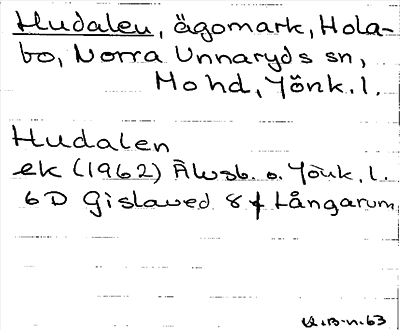 Hudalen, ägomark, Hola-
bo, Norra Unnaryds sn,
Mo hd, Jönk. l.
Hudalen
ek (1962) Älvsb. o. Jönk. l.
6D Gislaved 8f Långarum